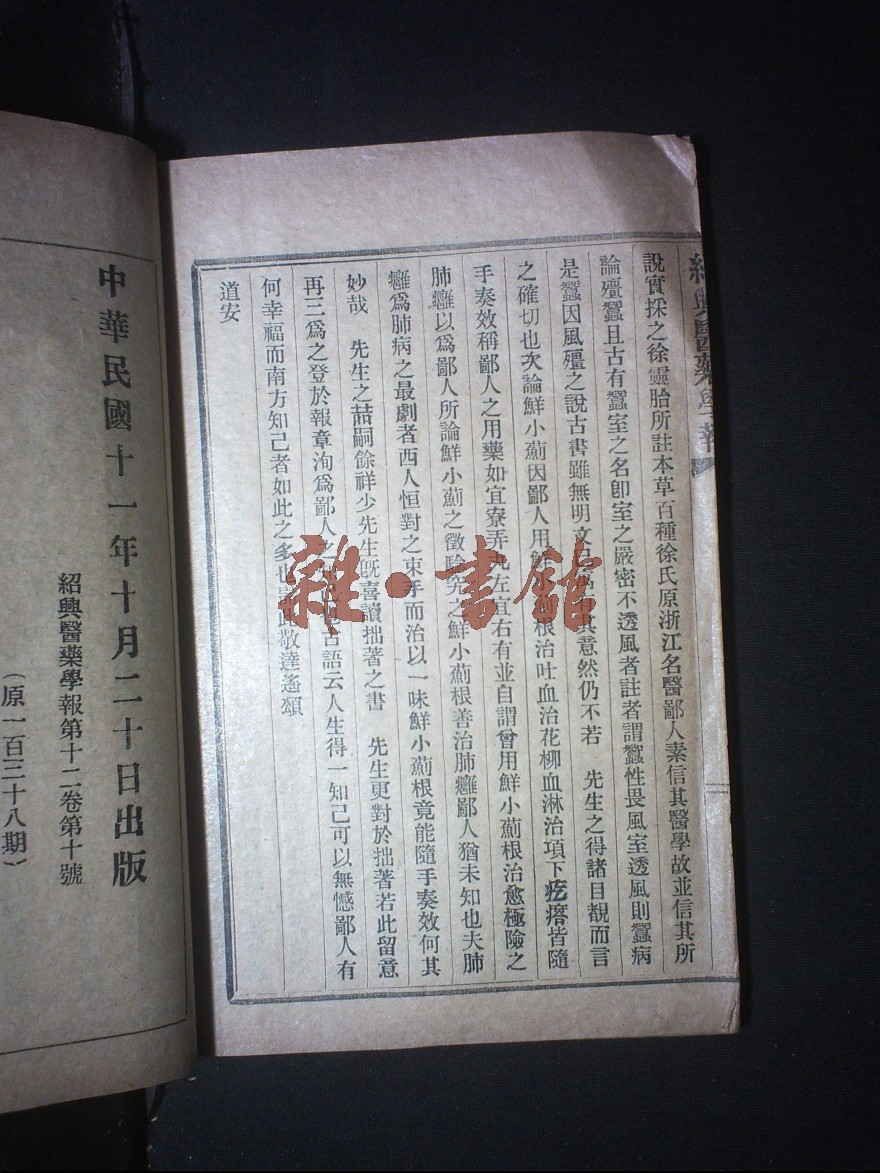 紹興醫藥學報
說實採之徐靈胎所註本草百種徐氏原浙江名醫鄙人素信其醫學故並信其所
論殭蠶且古有蠶室之名卽室之嚴密不透風者註者謂蠶性畏風室透風則蠶病
是蠶因風殭之說古書雖無明文 其意然仍不若 先生之得諸目覩而言
之確切也次論鮮小薊因鄙人用鮮小薊根治吐血治花柳血淋治項下疙瘩皆隨
手奏效稱鄙人之用藥如宜寮弄丸左宜右有並自謂曾用鮮小薊根治愈極險之
肺癰以爲鄙人所論鮮小薊之徵驗究之鮮小薊根善治肺癰鄙人猶未知也夫肺
癰爲肺病之最劇者西人恒對之束手而治以一味鮮小薊根竟能隨手奏效何其
妙哉 先生之喆嗣餘祥少先生旣喜讀拙著之書 先生更對於拙著若此留意
再三爲之登於報章洵爲鄙人之 古語云人生得一知己可以無憾鄙人有
何幸福而南方知己者如此之多也 此敬達遙頌
道安
中華民國十一年十月二十日出版
紹興醫藥學報第十二卷第十號
(原一百三十八期)
雜·書館